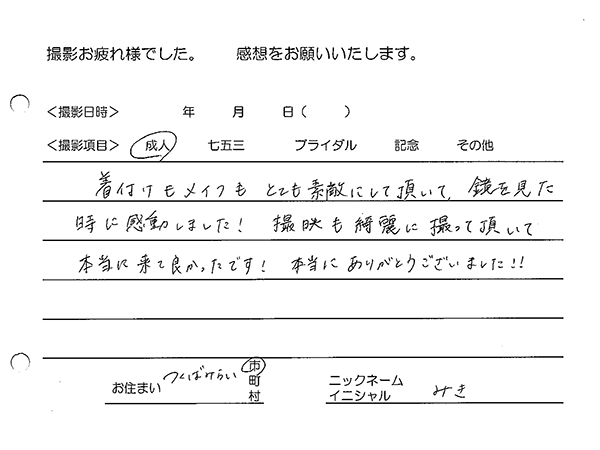 撮影お疲れ様でした。 感想をお願いいたします。
＜撮影日時＞ 年 月 日（ ）
＜撮影項目＞ 成人 七五三 ブライダル 記念 その他
着付けもメイクもとても素敵にして頂いて、鏡を見た
時に感動しました! 撮映も綺麗に撮って頂いて
本当に来て良かったです! 本当にありがとうございました!!
お住まい つくばみらい 市 町 村 ニックネーム イニシャル みき